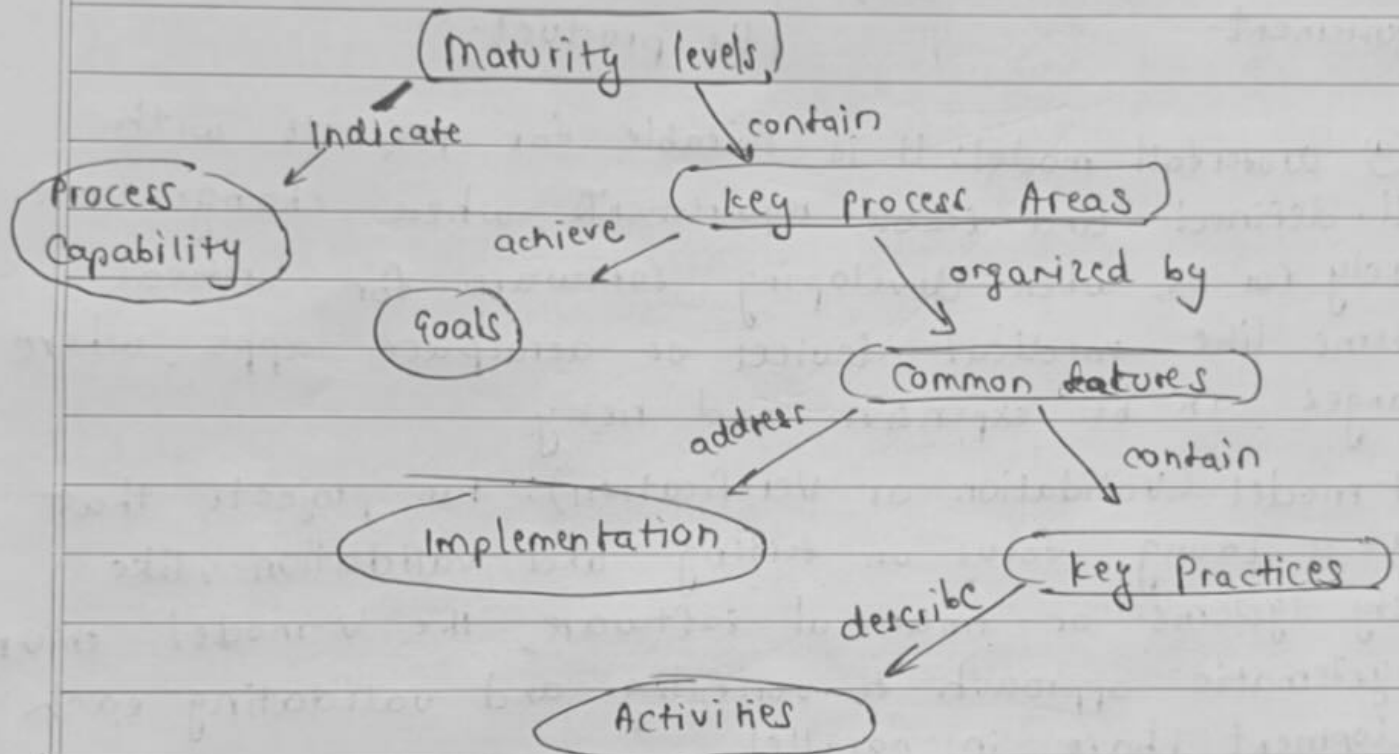 Maturity levels,
Indicate
contain
Process
Capability
key process Areas
achieve
organized by
Goals
Common features
address
contain
Implementation
key Practices
describe
Activities